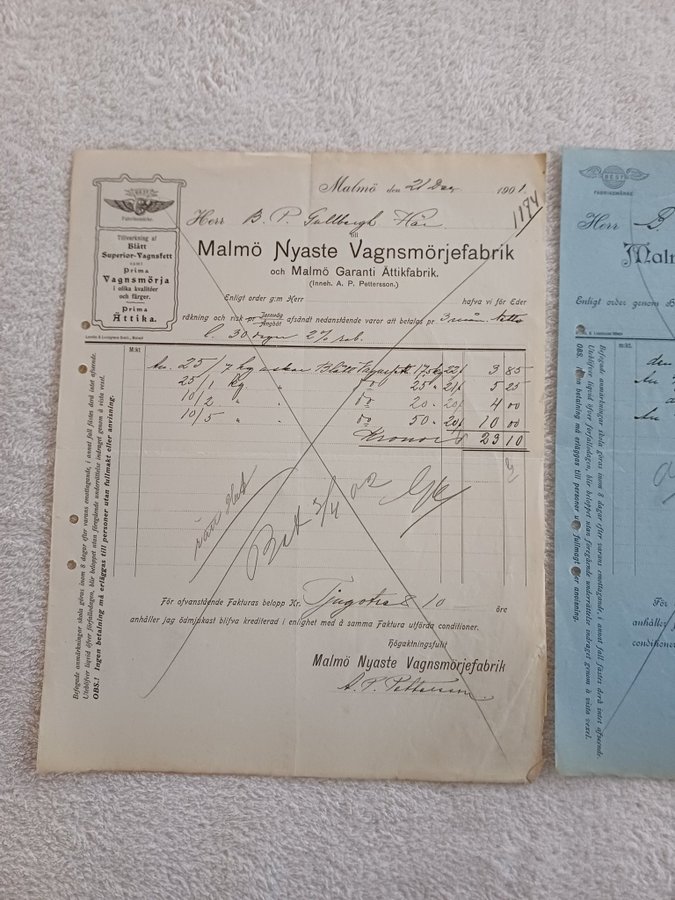 BEST
Fabriksmärke.
Tillverkning af
Blått
Superior-Vagnsfett
samt
Prima
Vagnsmörja
i olika kvalitéer
och färger.
Prima
Ättika.
Malmö den 21 Dec 1901.
1184
Herr B. P.
till
Malmö Nyaste Vagnsmörjefabrik
och Malmö Garanti Ättikfabrik.
(Inneh. A. P. Pettersson.)
Enligt order g:m Herr hafva vi för Eder
räkning och risk pr Jernväg Ångbåt afsändt nedanstående varor att betalas pr 3 mån. Netto
30 dagar 2% rab.
M:kt
25/ 7 kg askar Blått Vagnsfett 175 22/ 3 85
25/1 kg " do 25 " 21/ 5 25
10/2 " " do 20 " 20/ 4 00
10/5 " " do 50 " 20/ 10 00
Kronor 23 10
Bet 3/4 02
För ofvanstående Fakturas belopp Kr. Tjugotre & 10 öre
anhåller jag ödmjukast blifva krediterad i enlighet med å samma Faktura utförda conditioner.
Högaktningsfullt
Malmö Nyaste Vagnsmörjefabrik
A. P. Pettersson.
Befogade anmärkningar skola göras inom 8 dagar efter varans emottagande, i annat fall fästes derå intet afseende.
Uteblifver liqvid efter förfallodagen, blir beloppet utan föregående underrättelse indraget genom à vista vexel.
OBS.! Ingen betalning må erläggas till personer utan fullmakt eller anvisning.
BEST
FABRIKSMÄRKE
Herr
Malm
Enligt order genom
OBS.
M:kt.
Befogade anmärkningar skola göras inom 8 dagar efter varans emottagande, i annat fall fästes derå intet afseende.
Uteblifver liqvid efter förfallodagen, blir beloppet utan föregående underrättelse indraget genom à vista vexel.
För
anhåller
conditioner